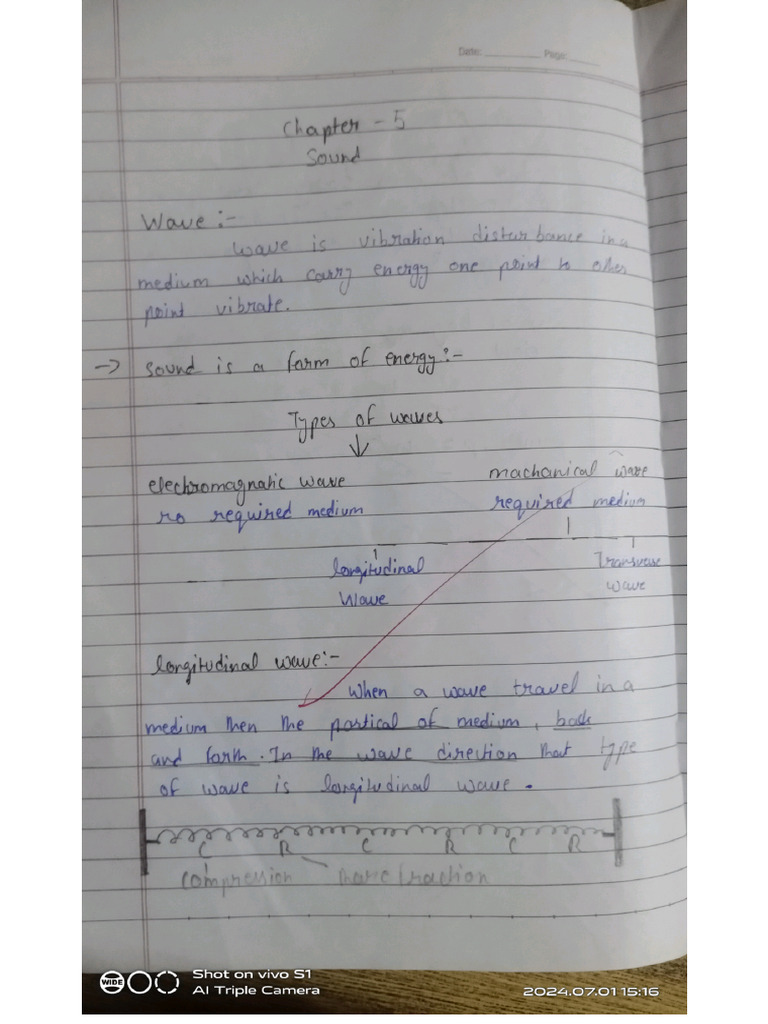 Date: ________ Page: ______
Chapter - 5
Sound
Wave :-
wave is vibration disturbance in a
medium which carry energy one point to other
point vibrate.
-> Sound is a form of energy :-
Types of waves
↓
electromagnatic wave machanical wave
no required medium required medium
longitudinal Transverse
Wave wave
longitudinal wave :-
When a wave travel in a
medium then the partical of medium, back
and form. In the wave direction that type
of wave is longitudinal wave.
C R C R C R
compression
Shot on vivo S1
WIDE AI Triple Camera 2024.07.01 15:16